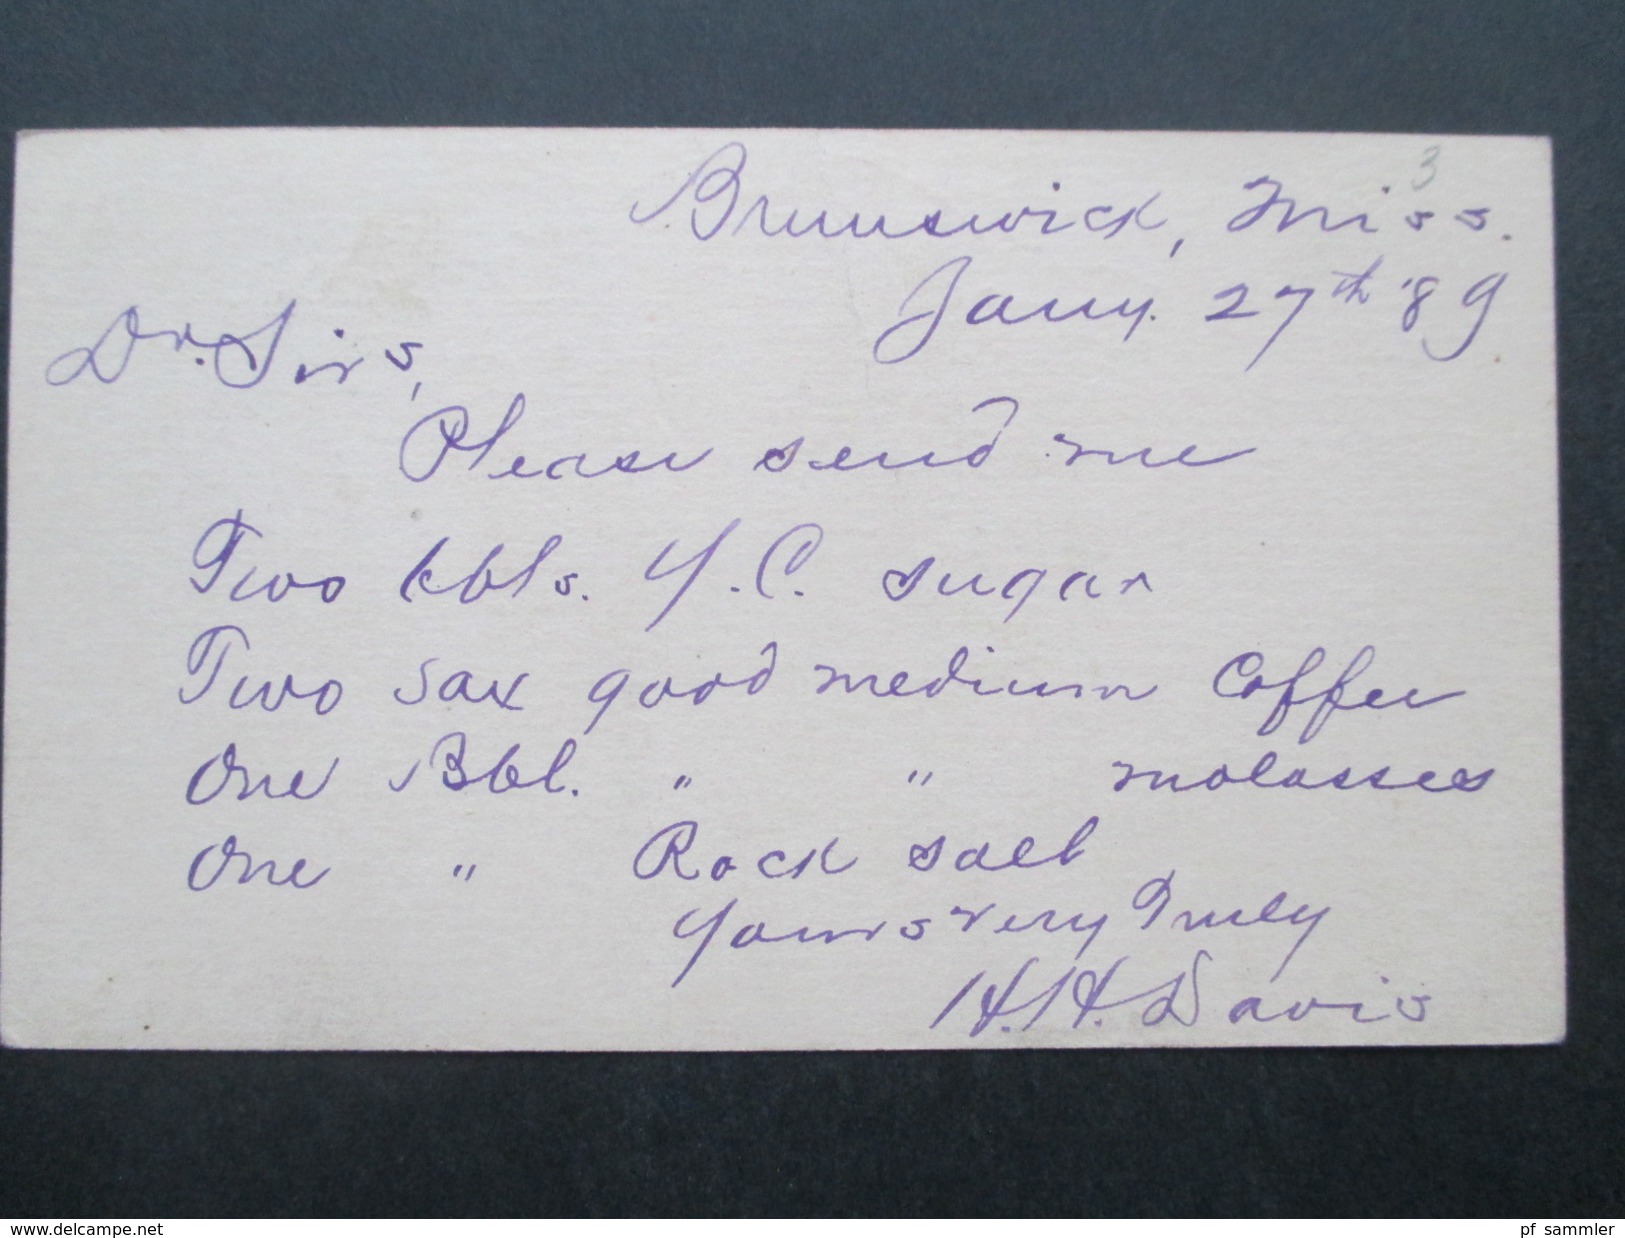 3
Brunswick, Miss.
Jany. 27th '89
Dr. Sirs,
Please send me
Two bbls. Y.C. sugar
Two sax good medium Coffee
One Bbl. " " molasses
One " Rock salt
Yours very Truly
H.H. Davis
www.delcampe.net
pf_sammler